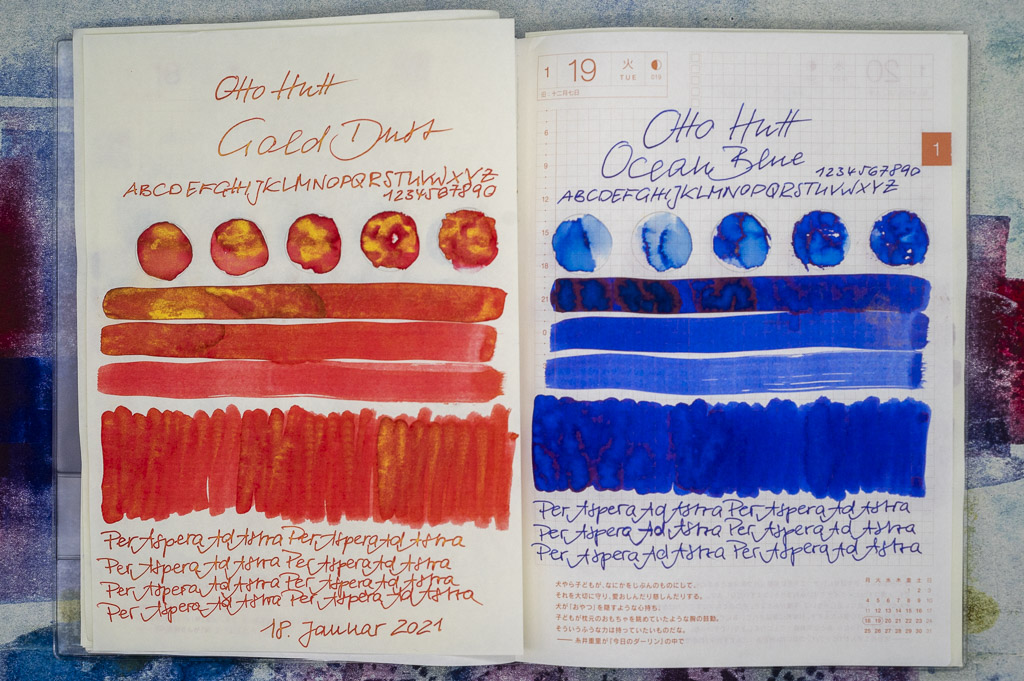 Otto Hutt
Gold Dust
ABCDEFGHIJKLMNOPQRSTUVWXYZ
1234567890
Per Aspera Ad Astra Per Aspera Ad Astra
Per Aspera Ad Astra Per Aspera Ad Astra
Per Aspera Ad Astra Per Aspera Ad Astra
Per Aspera Ad Astra Per Aspera Ad Astra
18. Januar 2021
1 19 火 TUE 019
旧:十二月七日
1
Otto Hutt
Ocean Blue
1234567890
ABCDEFGHIJKLMNOPQRSTUVWXYZ
6
9
12
18
21
0
Per Aspera Ad Astra Per Aspera Ad Astra
Per Aspera Ad Astra Per Aspera Ad Astra
Per Aspera Ad Astra Per Aspera Ad Astra
犬やら子どもが、なにかをじぶんのものにして、
それを大切に守り、愛おしんだり慈しんだりする。
犬が「おやつ」を隠すような心持ち。
子どもが枕元のおもちゃを眺めていたような胸の鼓動。
そういうふうな力は持っていたいものだな。
── 糸井重里が『今日のダーリン』の中で
月 火 水 木 金 土 日
1 2 3
4 5 6 7 8 9 10
11 12 13 14 15 16 17
18 19 20 21 22 23 24
25 26 27 28 29 30 31